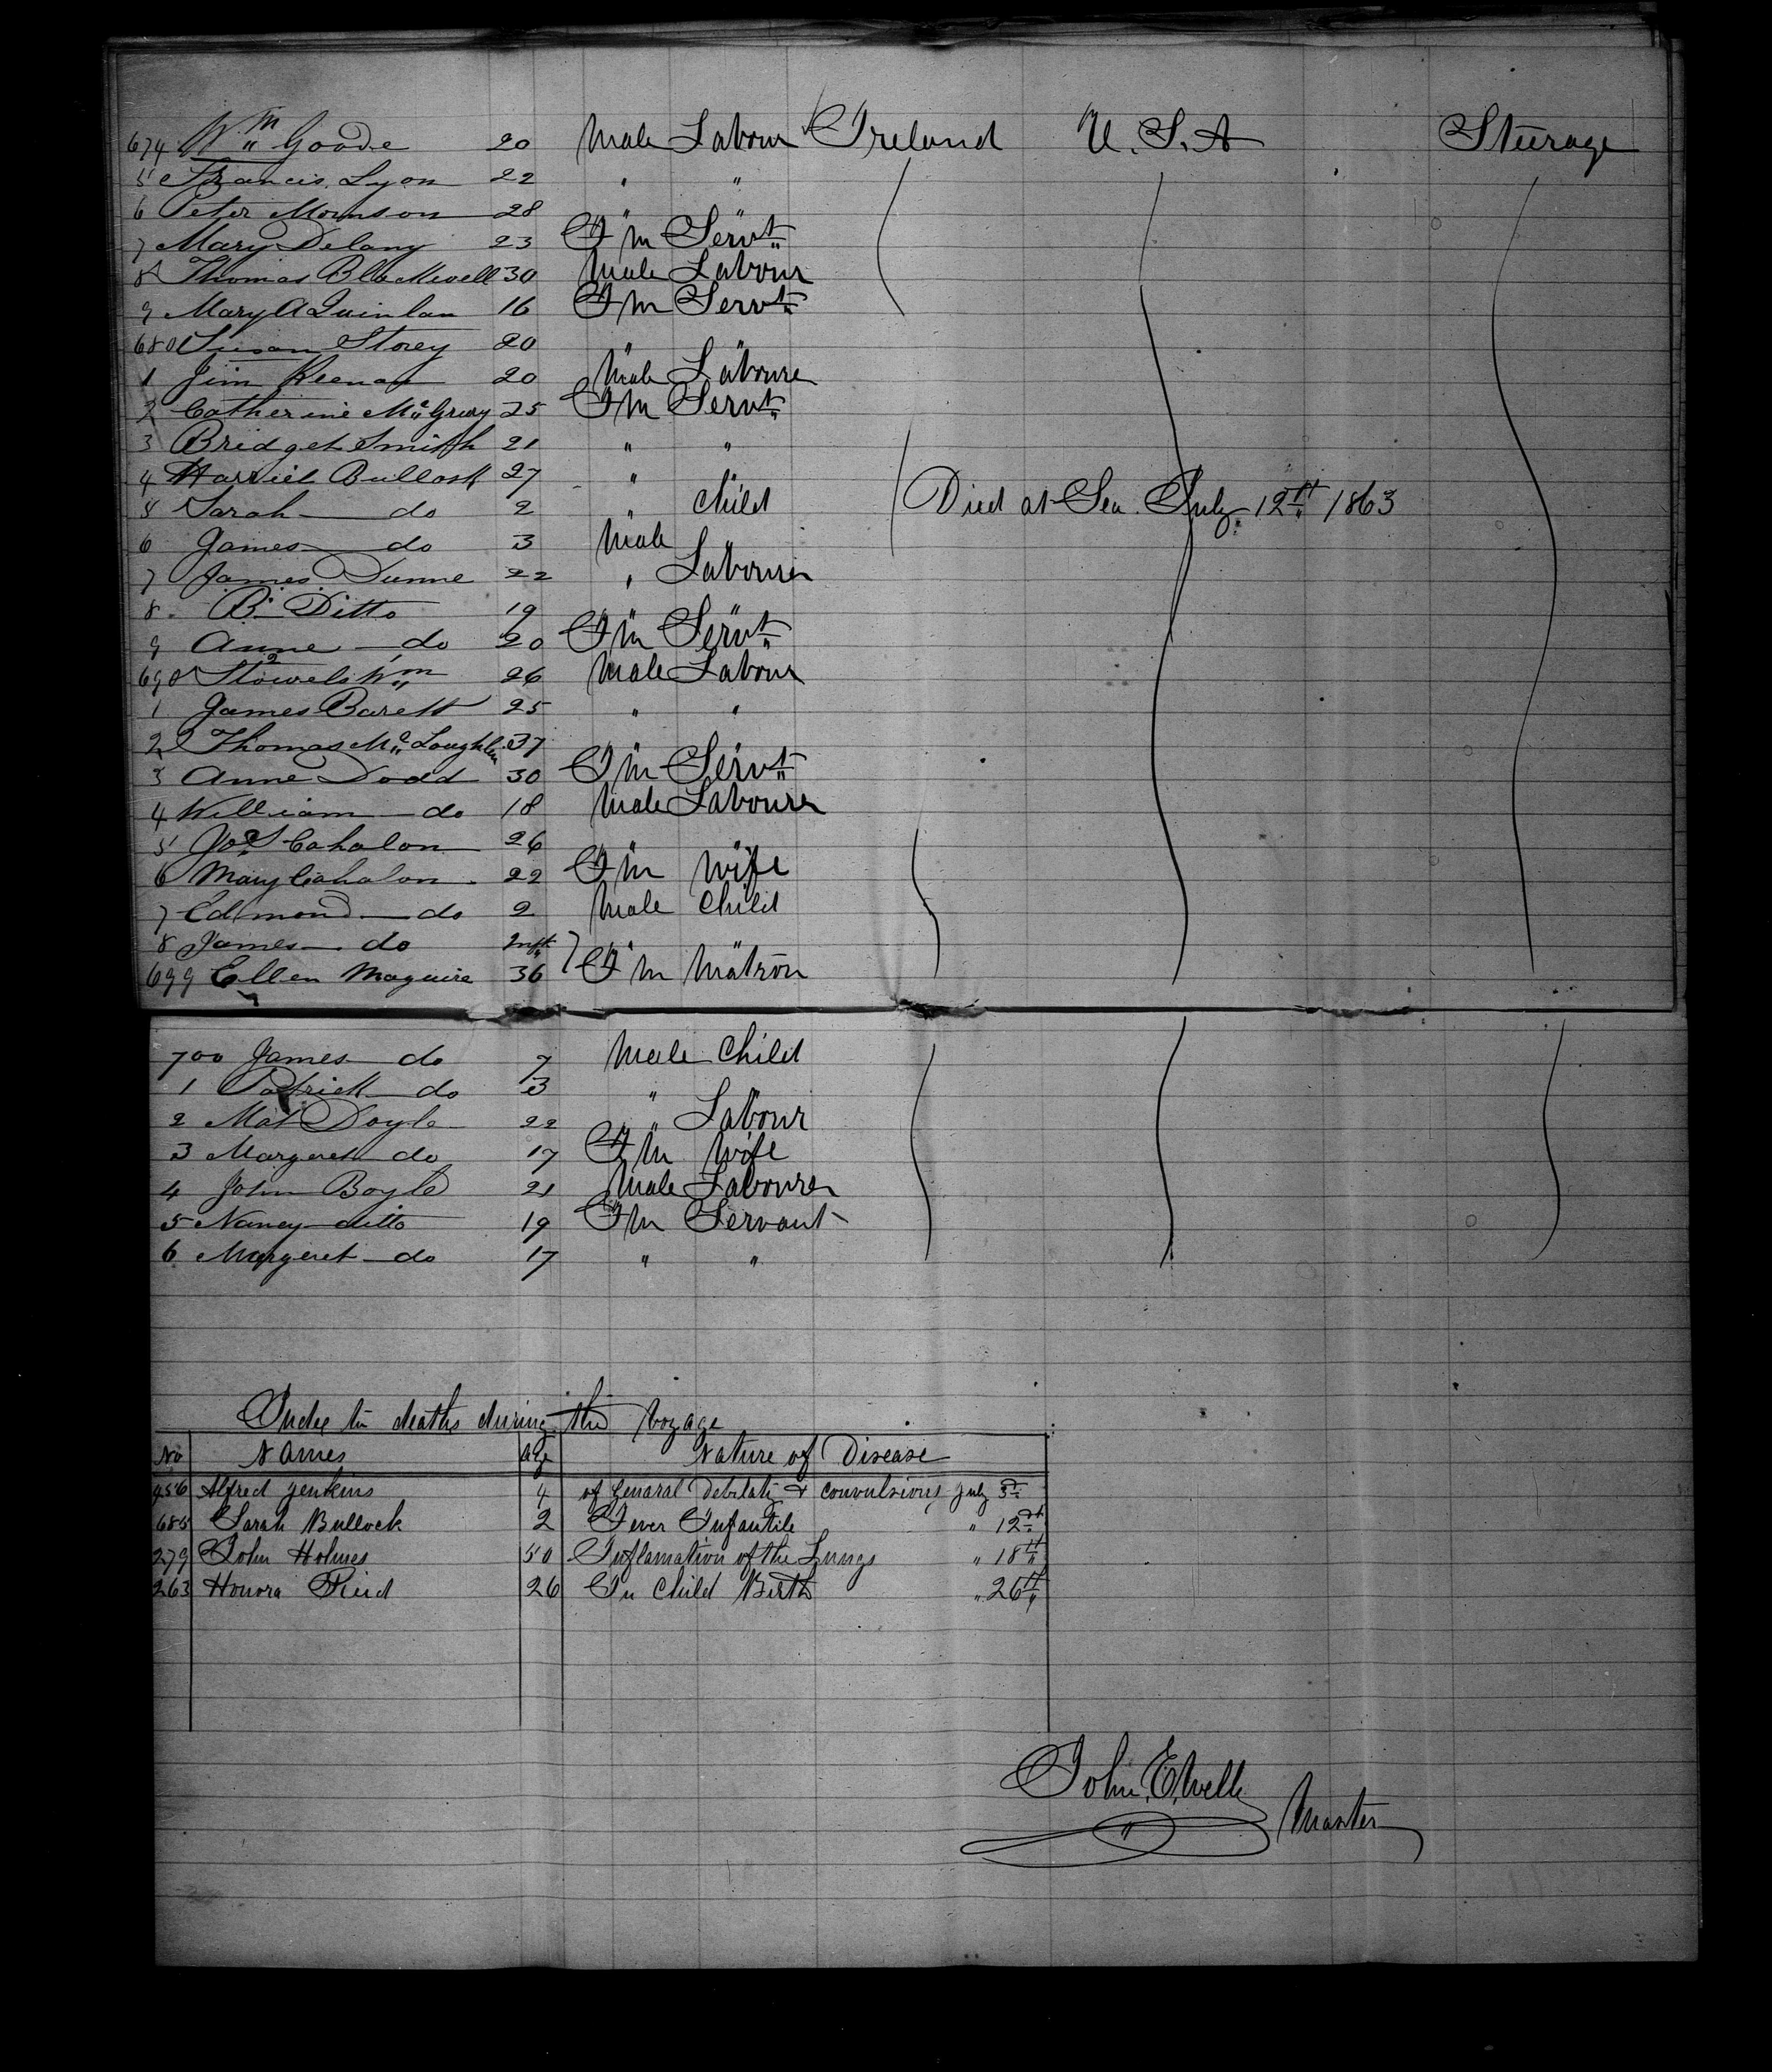 674 Wm Goode 20 Male Labour Ireland U.S.A Steerage
5 Francis Lyon 22 " "
6 Peter Morrison 28 " "
7 Mary Delany 23 Fm Servt
8 Thomas Blackwell 30 Male Labour
9 Mary A Quinlan 16 Fm Servt
680 Susan Storey 20 "
1 Jim Keenan 20 Male Labourer
2 Catherine Mc Grury 25 Fm Servt
3 Bridget Smith 21 " "
4 Harriet Bullock 27 "
5 Sarah do 2 " Child Died at Sea July 12th 1863
6 James do 3 Male "
7 James Dunne 22 " Labourer
8 B. Ditto 19 " "
9 Anne do 20 Fm Servt
690 Wm 26 Male Labour
1 James Barett 25 " "
2 Thomas Mc Loughlin 37 " "
3 Anne Dodd 30 Fm Servt
4 William do 18 Male Labourer
5 Jos Cahalon 26 " "
6 Mary Cahalon 22 Fm Wife
7 Edmond do 2 Male Child
8 James do Inft " "
699 Ellen Maguire 36 Fm Matron
700 James do 7 Male Child
1 Patrick do 3 " "
2 Mat Doyle 22 " Labour
3 Margeret do 17 Fm Wife
4 John Boyle 21 Male Labourer
5 Nancy ditto 19 Fm Servant
6 Margeret do 17 " "
deaths during the Voyage
No Names Age Nature of Disease
456 Alfred Jenkins 4 of Genaral Debilati & convulsions July 3rd
685 Sarah Bullock 2 Fever Infantile " 12th
279 John Holmes 50 Inflamation of the Lungs " 18th
263 Honora Reid 26 In Child Birth " 26th
John. E. Wells Master